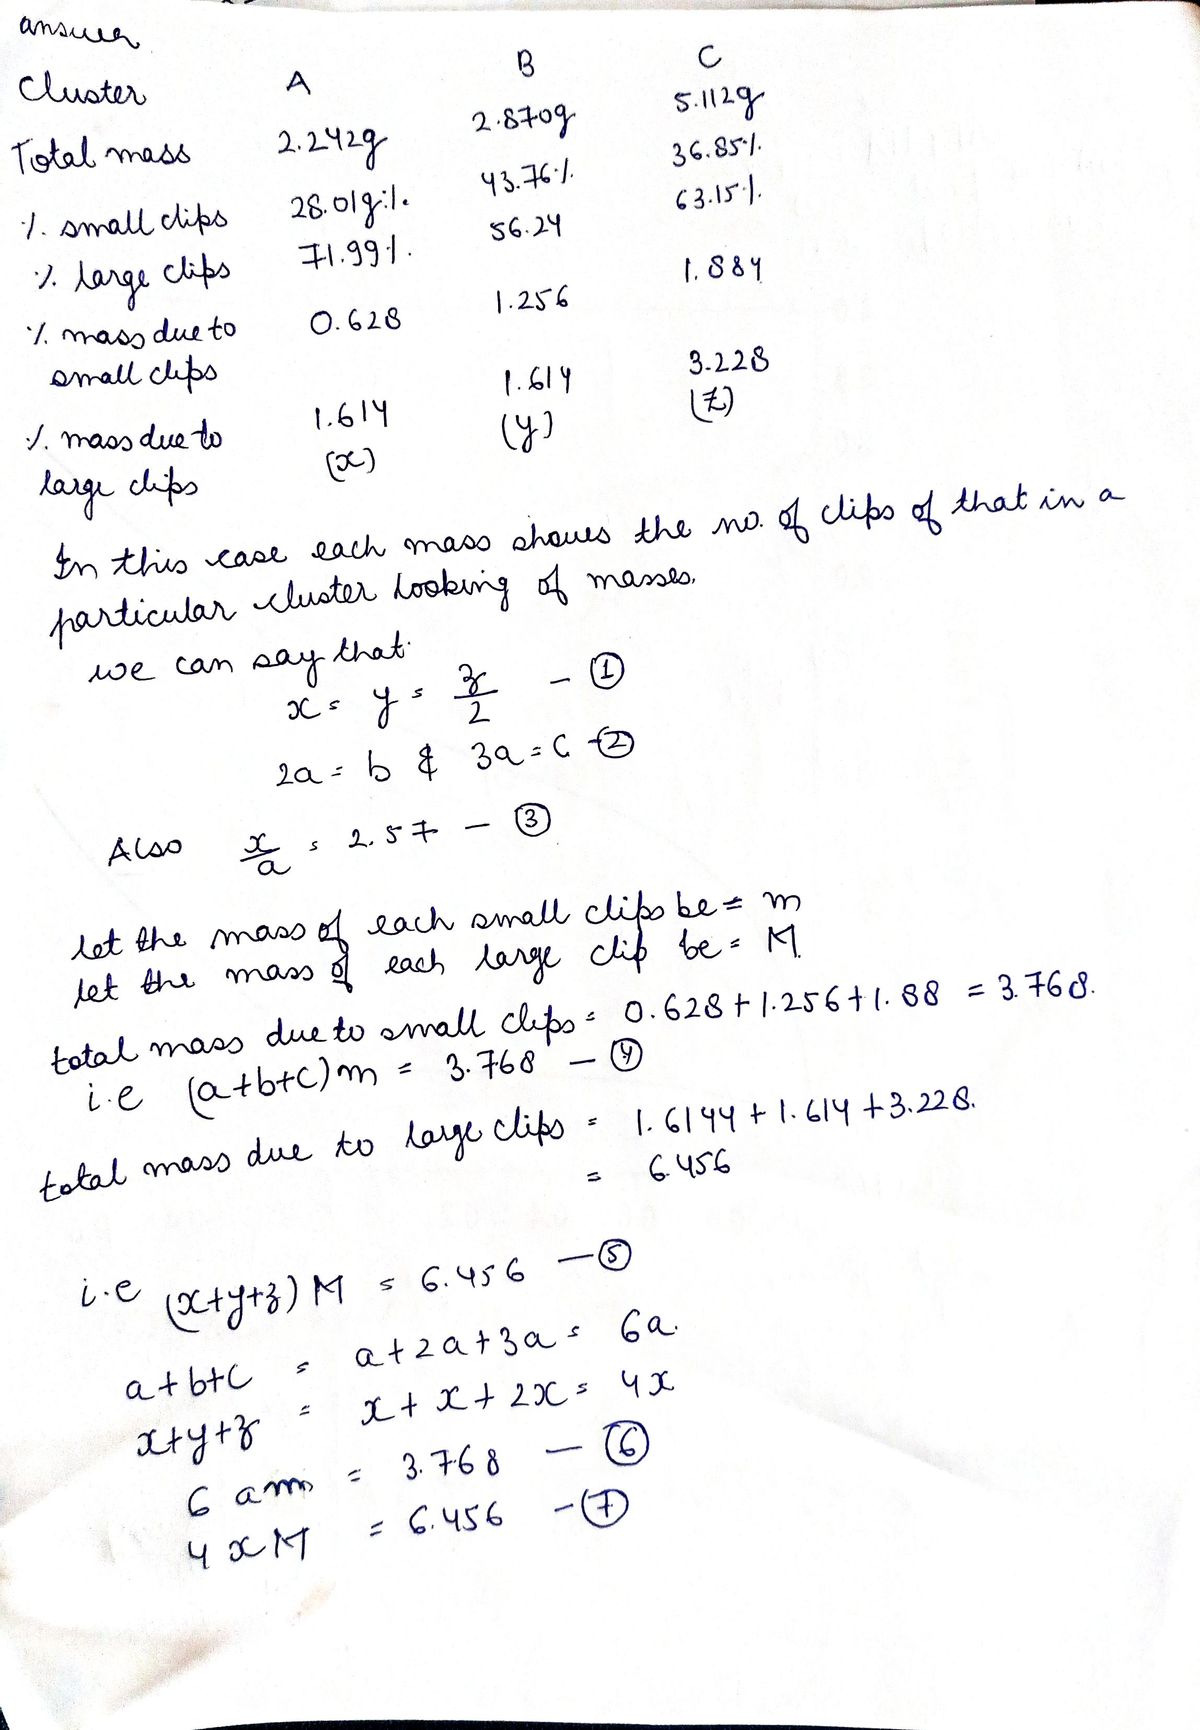 answer
Cluster A B C
Total mass 2.242g 2.870g 5.112g
% small clips 28.01g% 43.76% 36.85%
% large clips 71.99% 56.24 63.15%
% mass due to 0.628 1.256 1.884
small clips
% mass due to 1.614 1.614 3.228
large clips (x) (y) (z)
In this case each mass shows the no. of clips of that in a
particular cluster looking of masses.
we can say that
x = y = z/2 - ①
2a = b & 3a = c - ②
Also x/a = 2.57 - ③
let the mass of each small clips be = m
let the mass of each large clip be = M
total mass due to small clips = 0.628 + 1.256 + 1.88 = 3.768.
i.e (a+b+c)m = 3.768 - ④
total mass due to large clips = 1.6144 + 1.614 + 3.228.
= 6.456
i.e (x+y+z) M = 6.456 - ⑤
a+b+c = a+2a+3a = 6a.
x+y+z = x+x+2x = 4x
6 am = 3.768 - ⑥
4 xM = 6.456 - ⑦